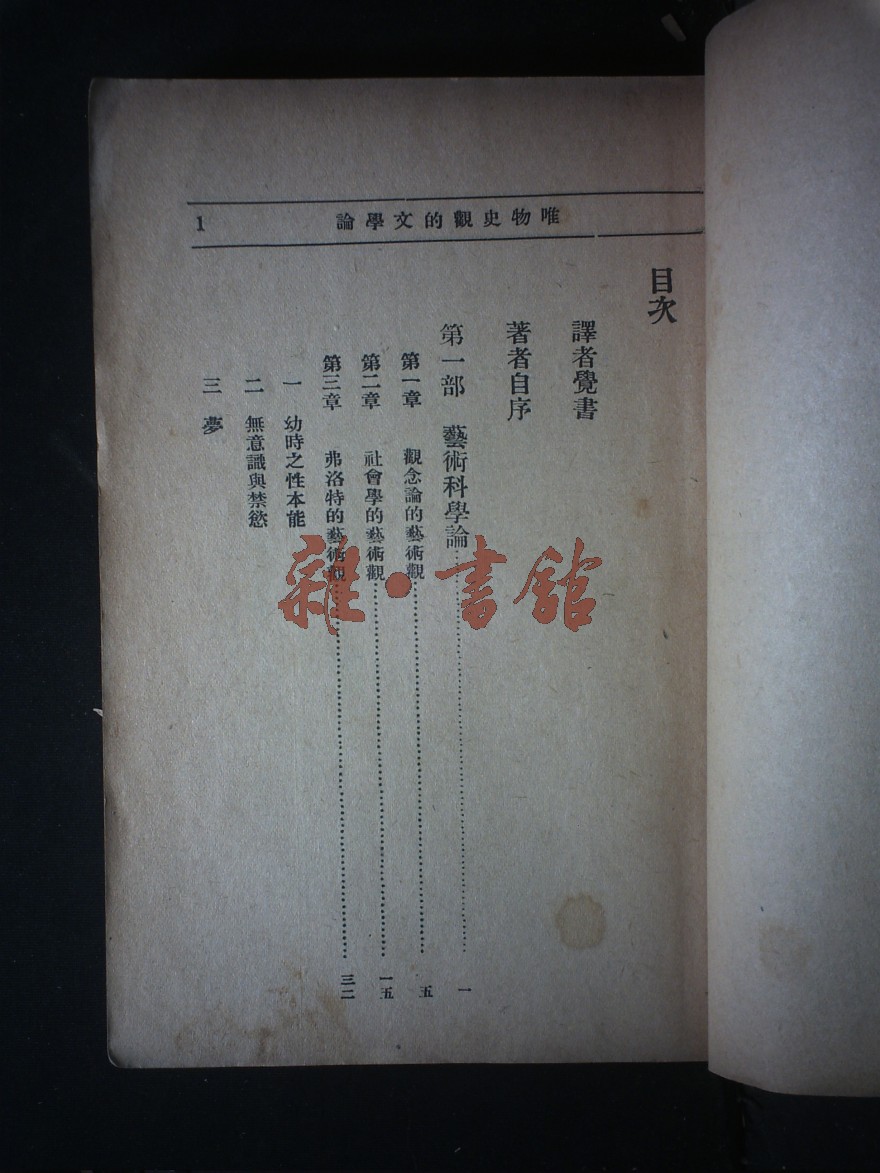 唯物史觀的文學論
1
目次
譯者覺書
著者自序
第一部 藝術科學論……一
第一章 觀念論的藝術觀……五
第二章 社會學的藝術觀……一五
第三章 弗洛特的藝術觀……三二
一 幼時之性本能
二 無意識與禁慾
三 夢
雜·書館